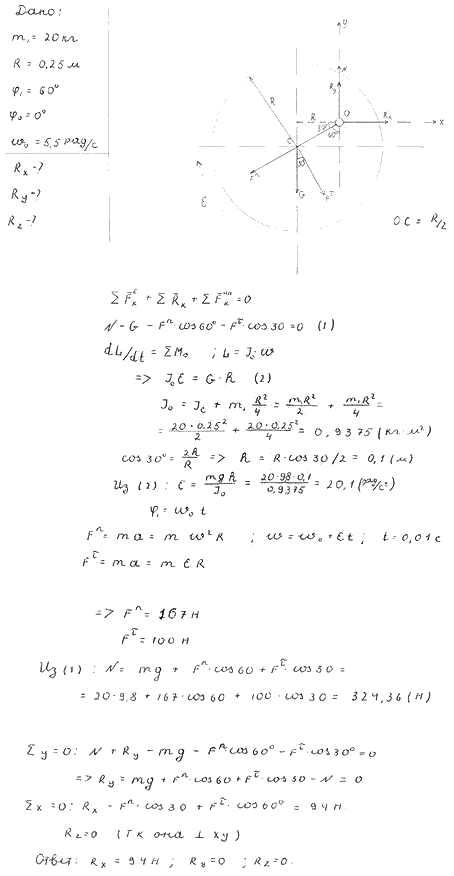 Дано:
m₁ = 20 кг
R = 0,25 м
φ₁ = 60°
φ₀ = 0°
ω₀ = 5,5 рад/с
Rx - ?
Ry - ?
Rz - ?
y
N
Ry
O
Rx
x
R
R
30°
60°
C
30°
Fⁿ
G
F^τ
ε
OC = R/2
Σ F̄ₖᴱ + Σ R̄ₖ + Σ F̄ₖᵘⁿ = 0
N - G - Fⁿ · cos60° - F^τ · cos30 = 0 (1)
dL/dt = ΣM₀ ; L = J₀ω
=> J₀ε = G · h (2)
J₀ = Jc + m₁ R²/4 = m₁R²/2 + m₁R²/4 =
= 20·0.25²/2 + 20·0.25²/4 = 0,9375 (кг·м²)
cos30° = 2h/R => h = R·cos30/2 = 0,1 (м)
Из (2) : ε = mgh/J₀ = 20·98·0,1/0,9375 = 20,1 (рад/с²)
φ₁ = ω₀ t
Fⁿ = ma = m ω²R ; ω = ω₀ + εt ; t = 0,01 с
F^τ = ma = m ε R
=> Fⁿ = 167 Н
F^τ = 100 Н
Из (1) : N = mg + Fⁿ·cos60 + F^τ·cos30 =
= 20·9,8 + 167·cos60 + 100·cos30 = 324,36 (Н)
Σy=0: N + Ry - mg - Fⁿ·cos60° - F^τ·cos30° = 0
=> Ry = mg + Fⁿ·cos60 + F^τ·cos30 - N = 0
Σx=0: Rx - Fⁿ·cos30 + F^τ·cos60° = 94Н.
Rz=0 (т к она ⊥ xy)
Ответ: Rx = 94Н ; Ry=0 ; Rz=0.